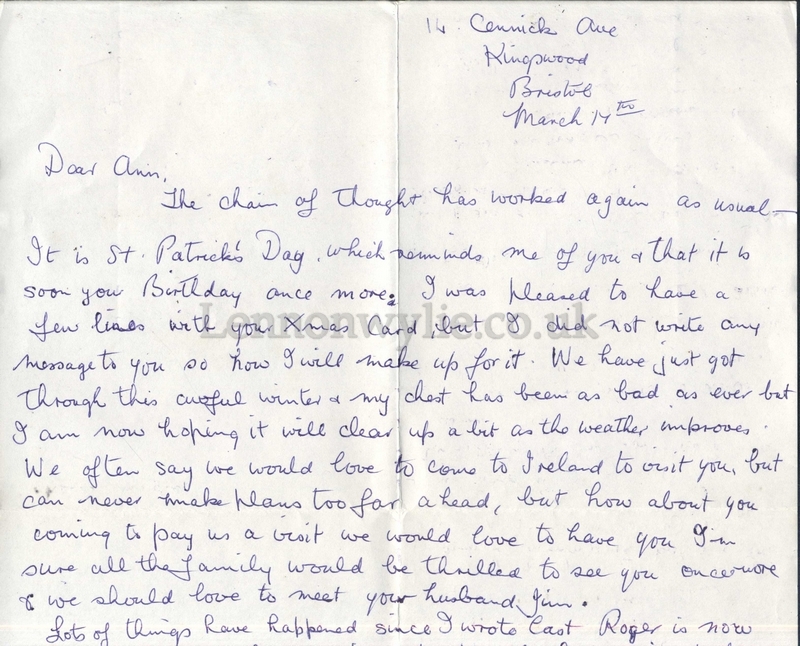 14. Cennick Ave
Kingswood
Bristol
March 17th
Dear Ann,
The chain of thought has worked again as usual —
It is St. Patrick's Day, which reminds me of you & that it is
soon you Birthday once more. I was pleased to have a
few lines with your Xmas Card, but I did not write any
Lennonwylie.co.uk
message to you so now I will make up for it. We have just got
through this awful winter & my chest has been as bad as ever but
I am now hoping it will clear up a bit as the weather improves.
We often say we would love to come to Ireland to visit you, but
can never make plans too far ahead, but how about you
coming to pay us a visit we would love to have you I'm
sure all the family would be thrilled to see you once more
& we should love to meet your husband Jim.
Lots of things have happened since I wrote last Roger is now